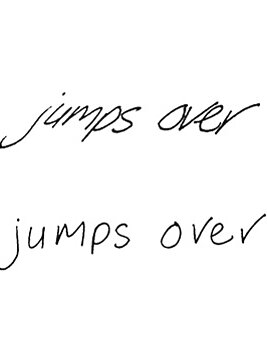 jumps over
jumps over